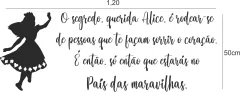 1,20
O segredo, querida Alice, é rodear-se
de pessoas que te façam sorrir o coração.
É então, só então que estarás no
País das maravilhas.
50cm